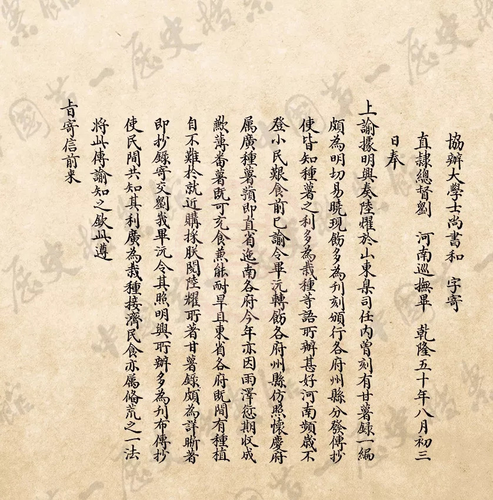 協辦大學士尚書和　字寄
直隸總督劉　河南巡撫畢　乾隆五十年八月初三
日奉
上諭據明興奏陸燿於山東臬司任內曾刻有甘薯錄一編
頗為明切易曉現飭多為刊刻頒行各府州縣分發傳抄
使皆知種薯之利多為栽種等語所辦甚好河南頻歲不
登小民艱食前已諭令畢沅轉飭各府州縣仿照懷慶府
屬廣種薯蕷即直省迤南各府今年亦因雨澤愆期收成
歉薄番薯既可充食兼能耐旱且東省各府既間有種植
自不難於就近購採朕閱陸燿所著甘薯錄頗為詳晰著
即抄錄寄交劉峩畢沅令其照明興所辦多為刊布傳抄
使民間共知其利廣為栽種接濟民食亦屬備荒之一法
將此傳諭知之欽此遵
旨寄信前來
中國第一歷史檔案館